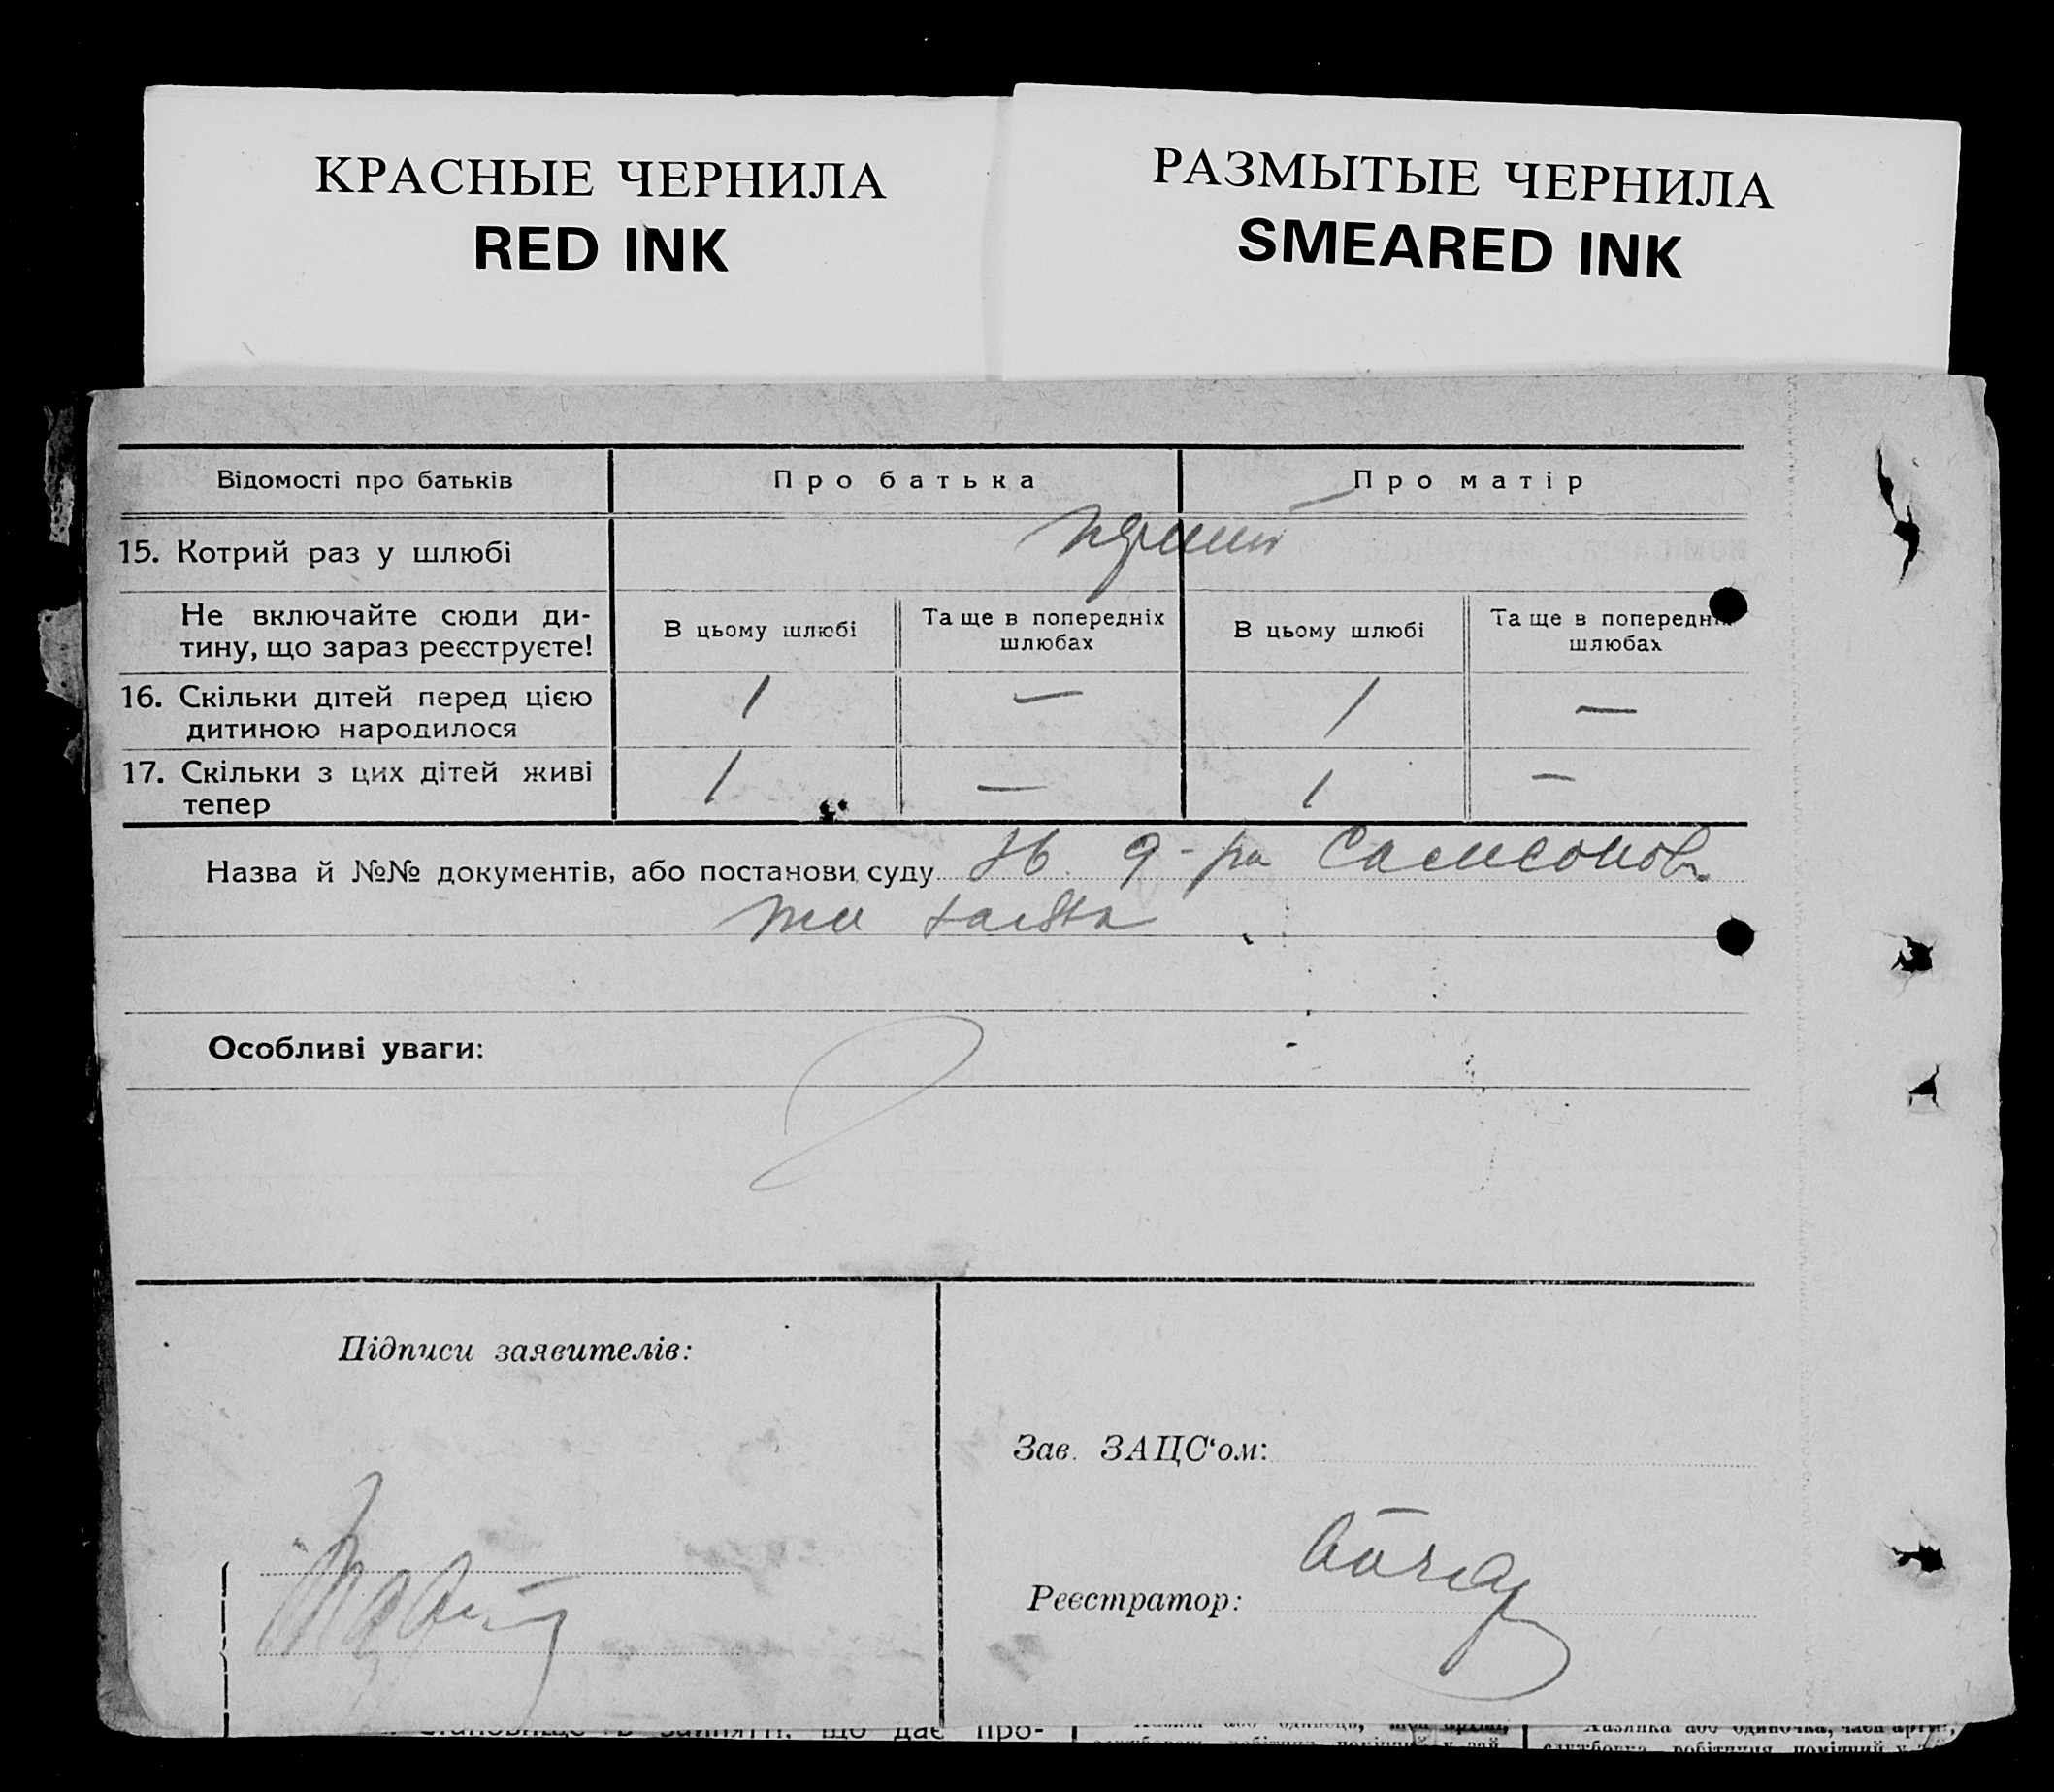 КРАСНЫЕ ЧЕРНИЛА
RED INK
РАЗМЫТЫЕ ЧЕРНИЛА
SMEARED INK
Відомості про батьків
Про батька
Про матір
15. Котрий раз у шлюбі
Не включайте сюди ди-
тину, що зараз реєструєте!
В цьому шлюбі
Та ще в попередніх
шлюбах
В цьому шлюбі
Та ще в попередніх
шлюбах
16. Скільки дітей перед цією
дитиною народилося
1 — 1 —
17. Скільки з цих дітей живі
тепер
1 — 1 —
Назва й №№ документів, або постанови суду
та
Особливі уваги:
Підписи заявителів:
Зав. ЗАЦС‘ом:
Реєстратор:
що дає про-